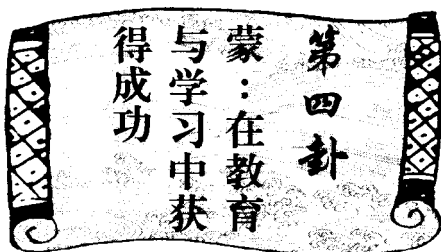 第四卦
蒙：在教育
与学习中获
得成功